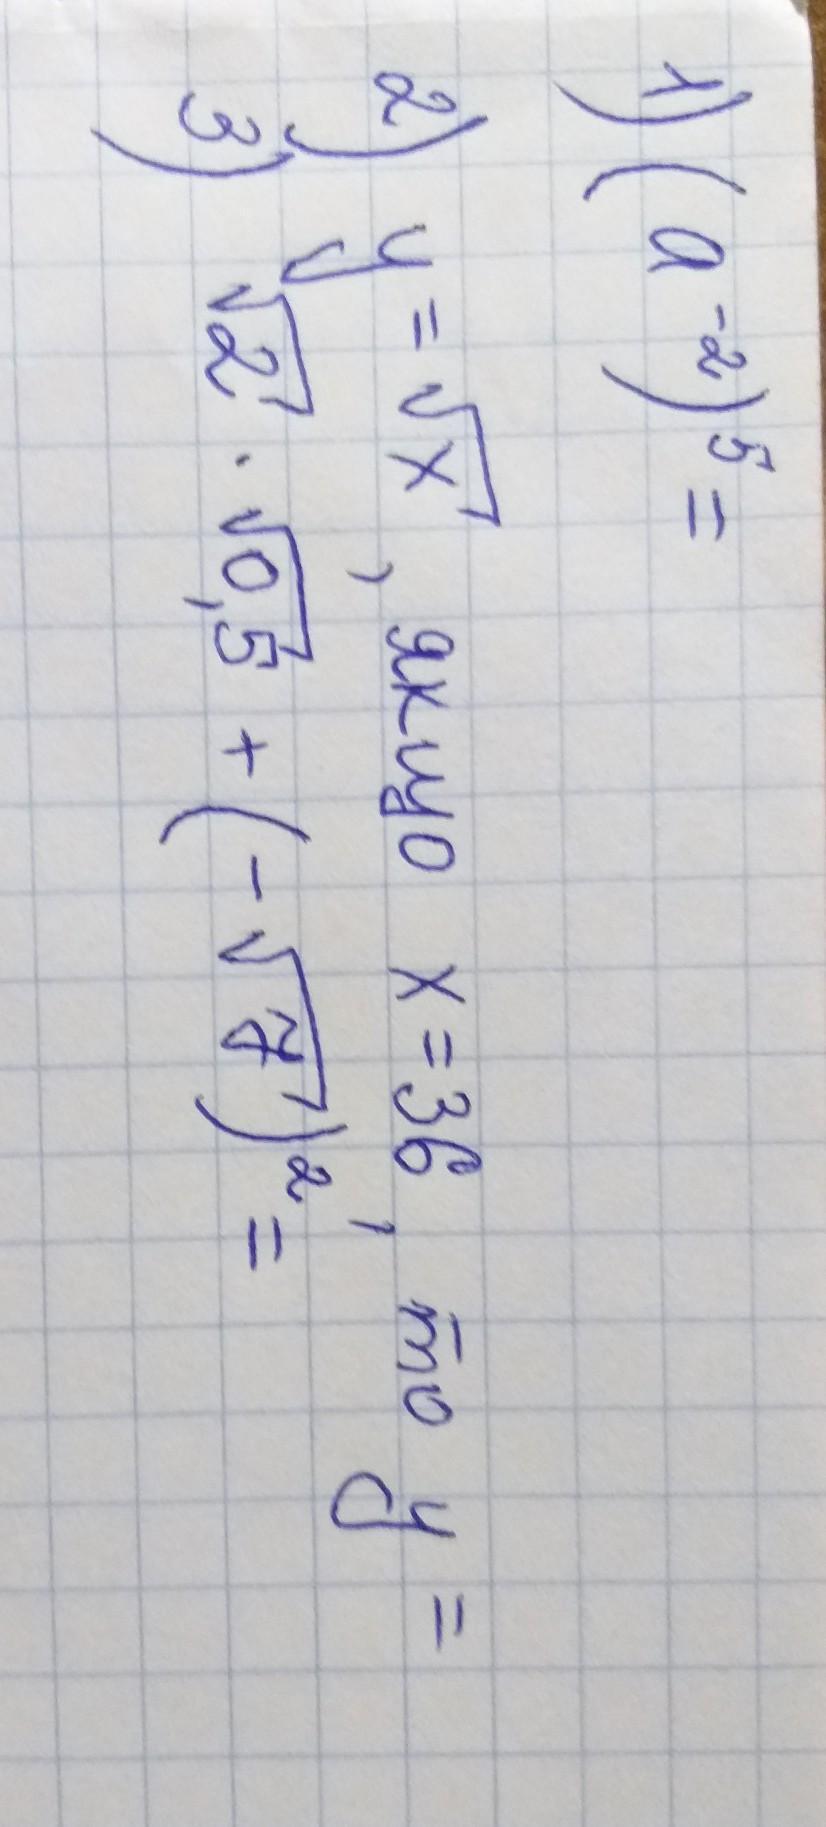 1) (a⁻²)⁵ =
2) y = √x , якщо x = 36 , то y =
3) √2 · √0,5 + (-√7)² =